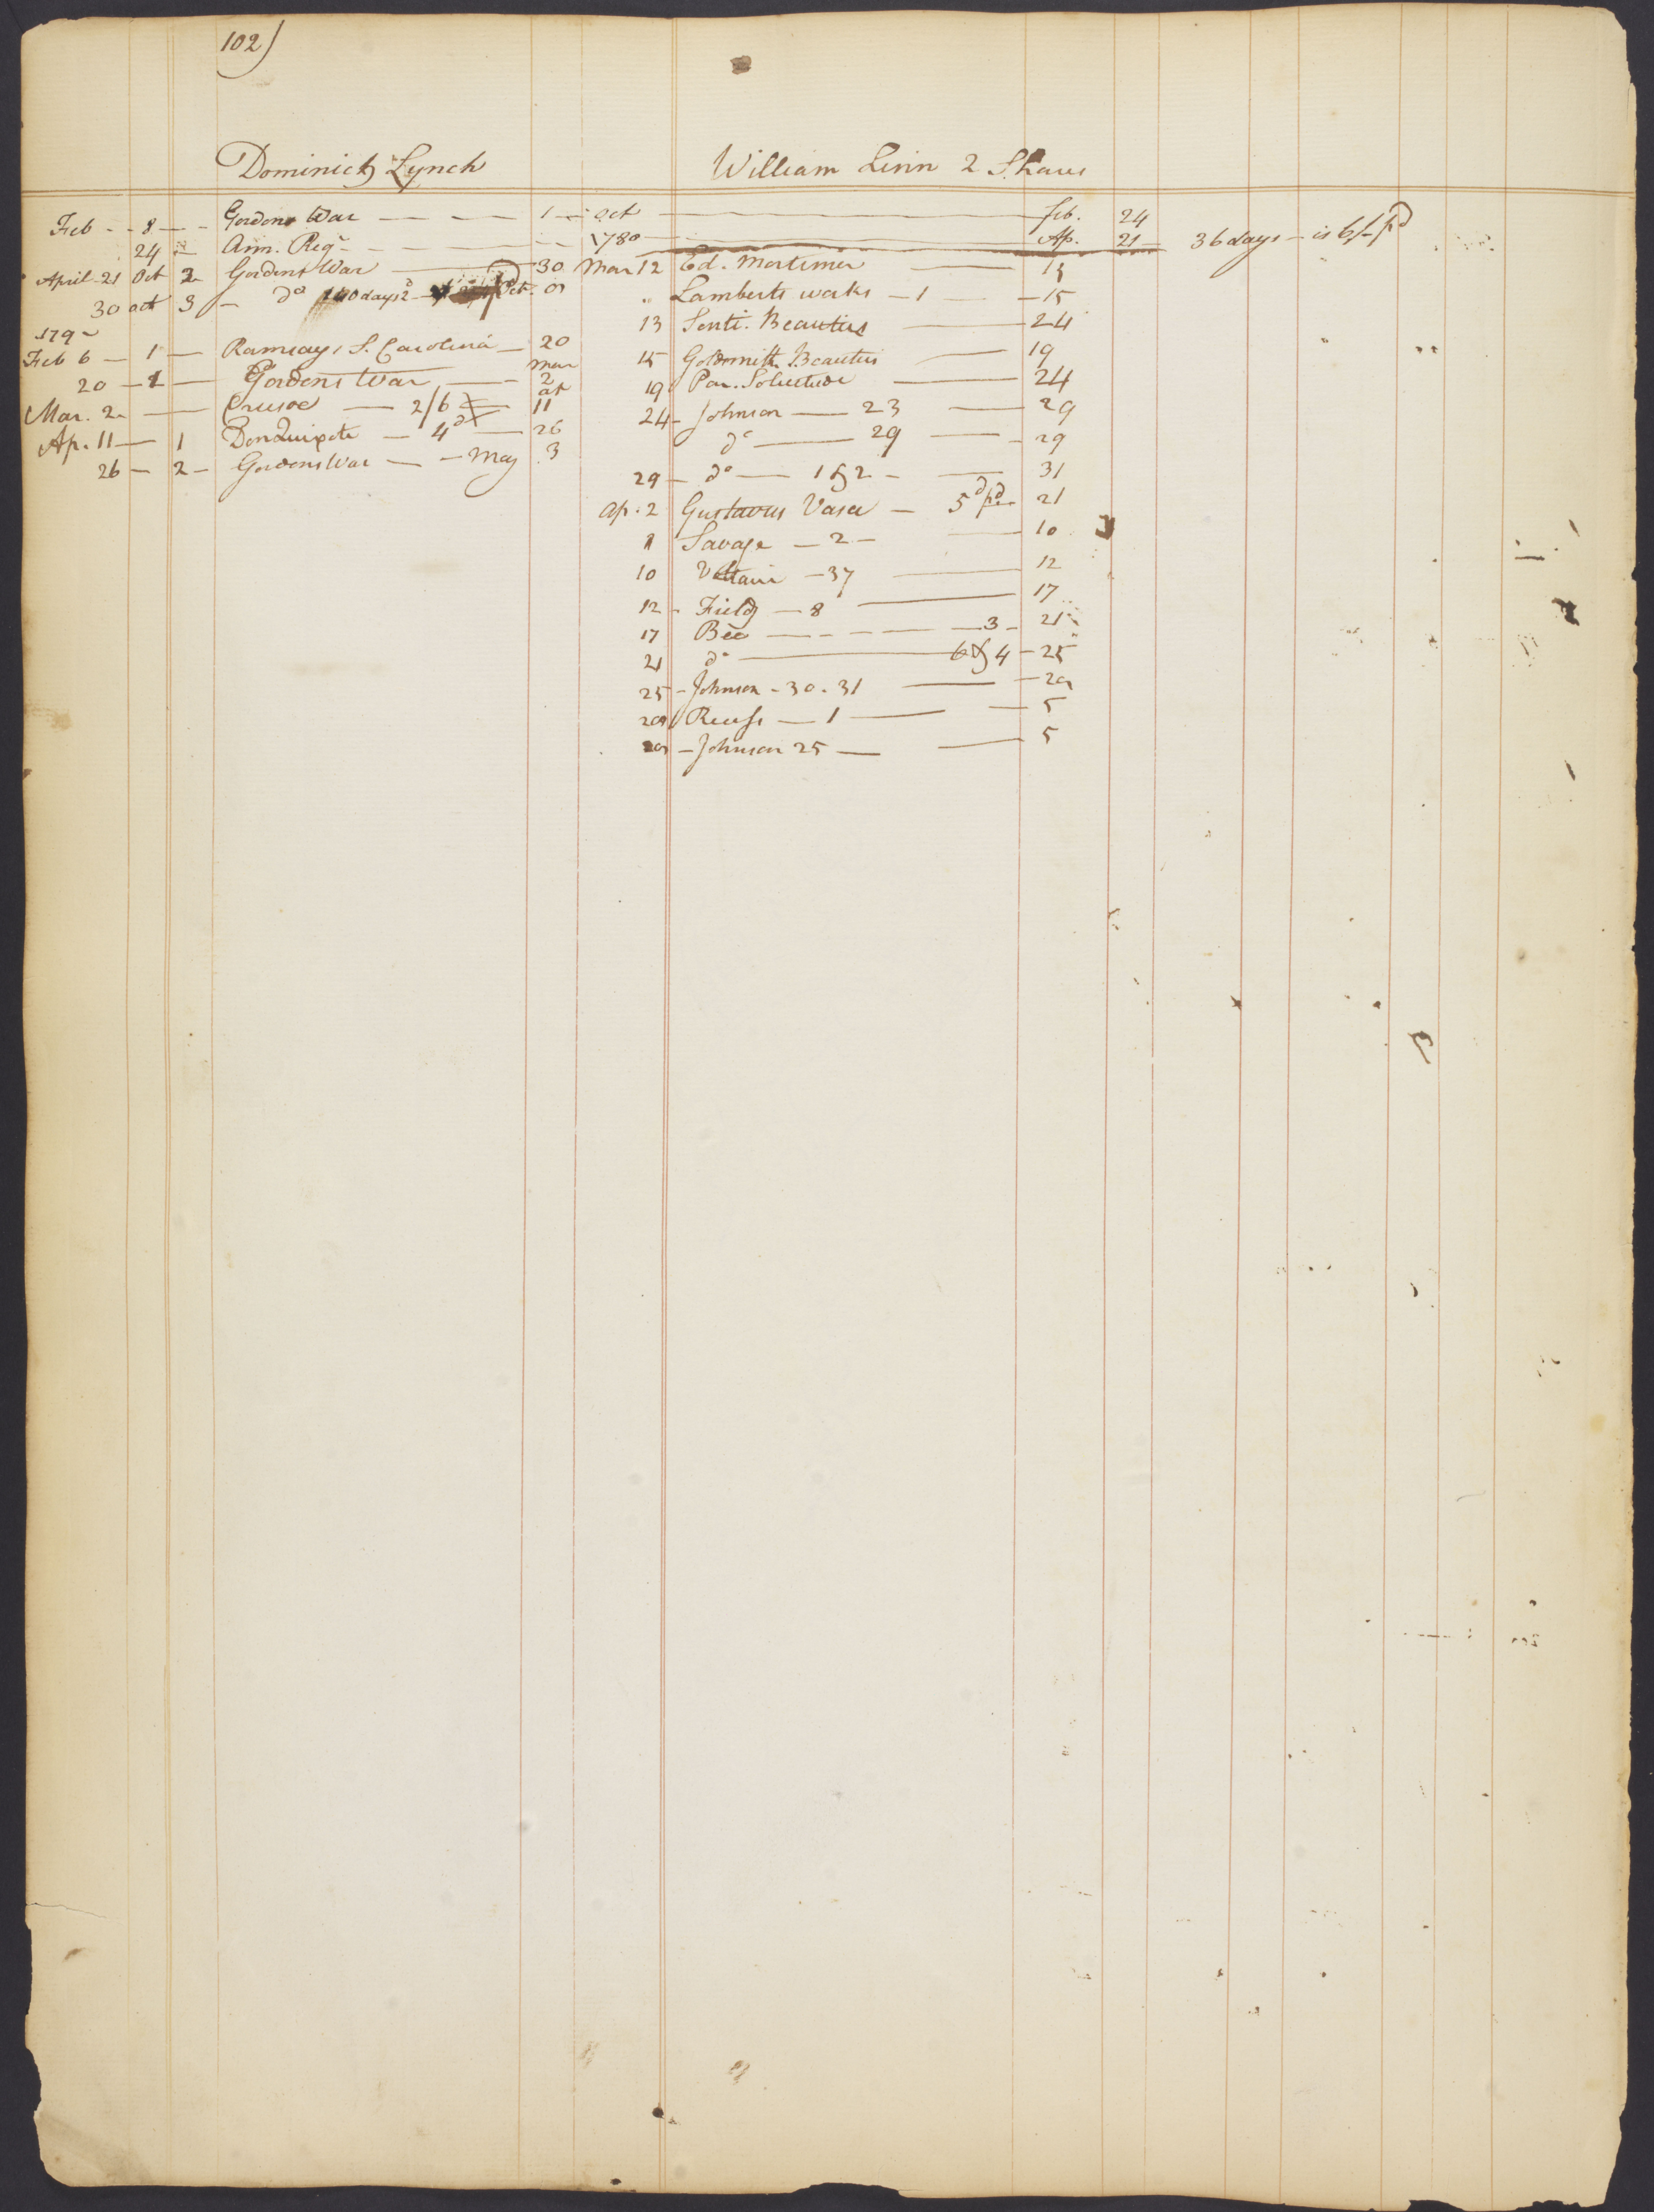 102)
Dominick Lynch
Feb - - 8 - - Gordons War - - - 1 - Oct - feb. 24
24 - Ann. Reg. - - - 1780 - Ap. 21 - 36 days - is 6/- pd
April 21 Oct 2 - Gordens War - 30
30 oct 3 - do 140 days
179
Feb 6 - 1 - Ramsays S. Carolina - 20
20 - 1 - Gordens War - Mar 2
Mar. 2 - Crusoe - 2/6 - ap 11
Ap. 11 - 1 Don Quixote - 4d - 26
26 - 2 - Gordons War - - May 3
William Linn 2 Shares
Mar 12 Ed. Mortimer - 15
" Lamberts works - 1 - 15
13 Senti. Beauties - 24
15 Goldsmith Beauties - 19
19 Par. Solitude - 24
24 - Johnson - 23 - 29
do - 29 - 29
29 - do - 1 & 2 - 31
Ap. 2 Gustavus Vasa - 5d pd 21
8 Savage - 2 - 10
10 Voltair - 37 - 12
12 - Fieldg - 8 - 17
17 Bee - - - - 3 - 21
21 do - 6 & 4 - 25
25 - Johnson - 30. 31 - 29
29 Recess - 1 - 5
29 - Johnson 25 - 5